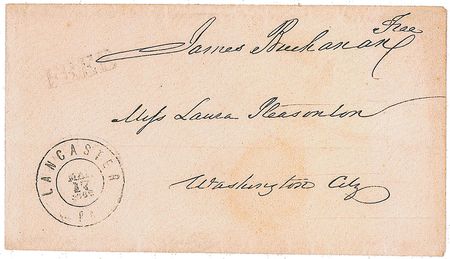 Free
James Buchanan
FREE
Miss Laura Pleasonton
Washington City
LANCASTER
Pa.